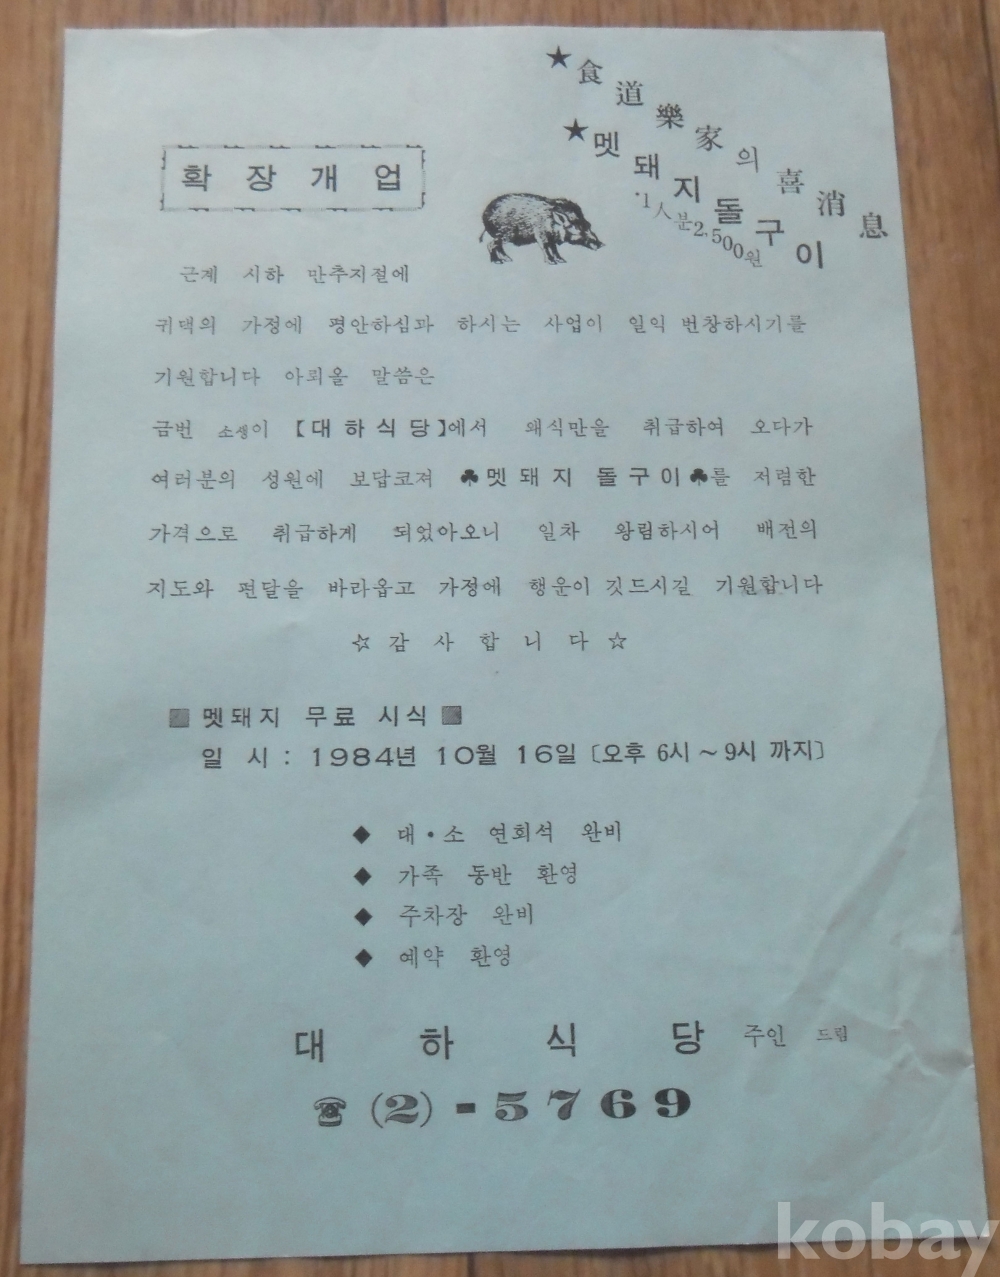 ★食道樂家의 喜消息
★멧돼지돌구이
·1人분2,500원
확장개업
근계 시하 만추지절에
귀댁의 가정에 평안하심과 하시는 사업이 일익 번창하시기를
기원합니다 아뢰올 말씀은
금번 소생이 【대하식당】에서 왜식만을 취급하여 오다가
여러분의 성원에 보답코져 ♣멧돼지 돌구이♣를 저렴한
가격으로 취급하게 되었아오니 일차 왕림하시어 배전의
지도와 편달을 바라옵고 가정에 행운이 깃드시길 기원합니다
☆감사합니다☆
▨ 멧돼지 무료 시식 ▨
일 시 : 1984년 10월 16일 〔오후 6시 ~ 9시 까지〕
◆ 대·소 연회석 완비
◆ 가족 동반 환영
◆ 주차장 완비
◆ 예약 환영
대하식당 주인 드림
☎ (2)-5769
kobay